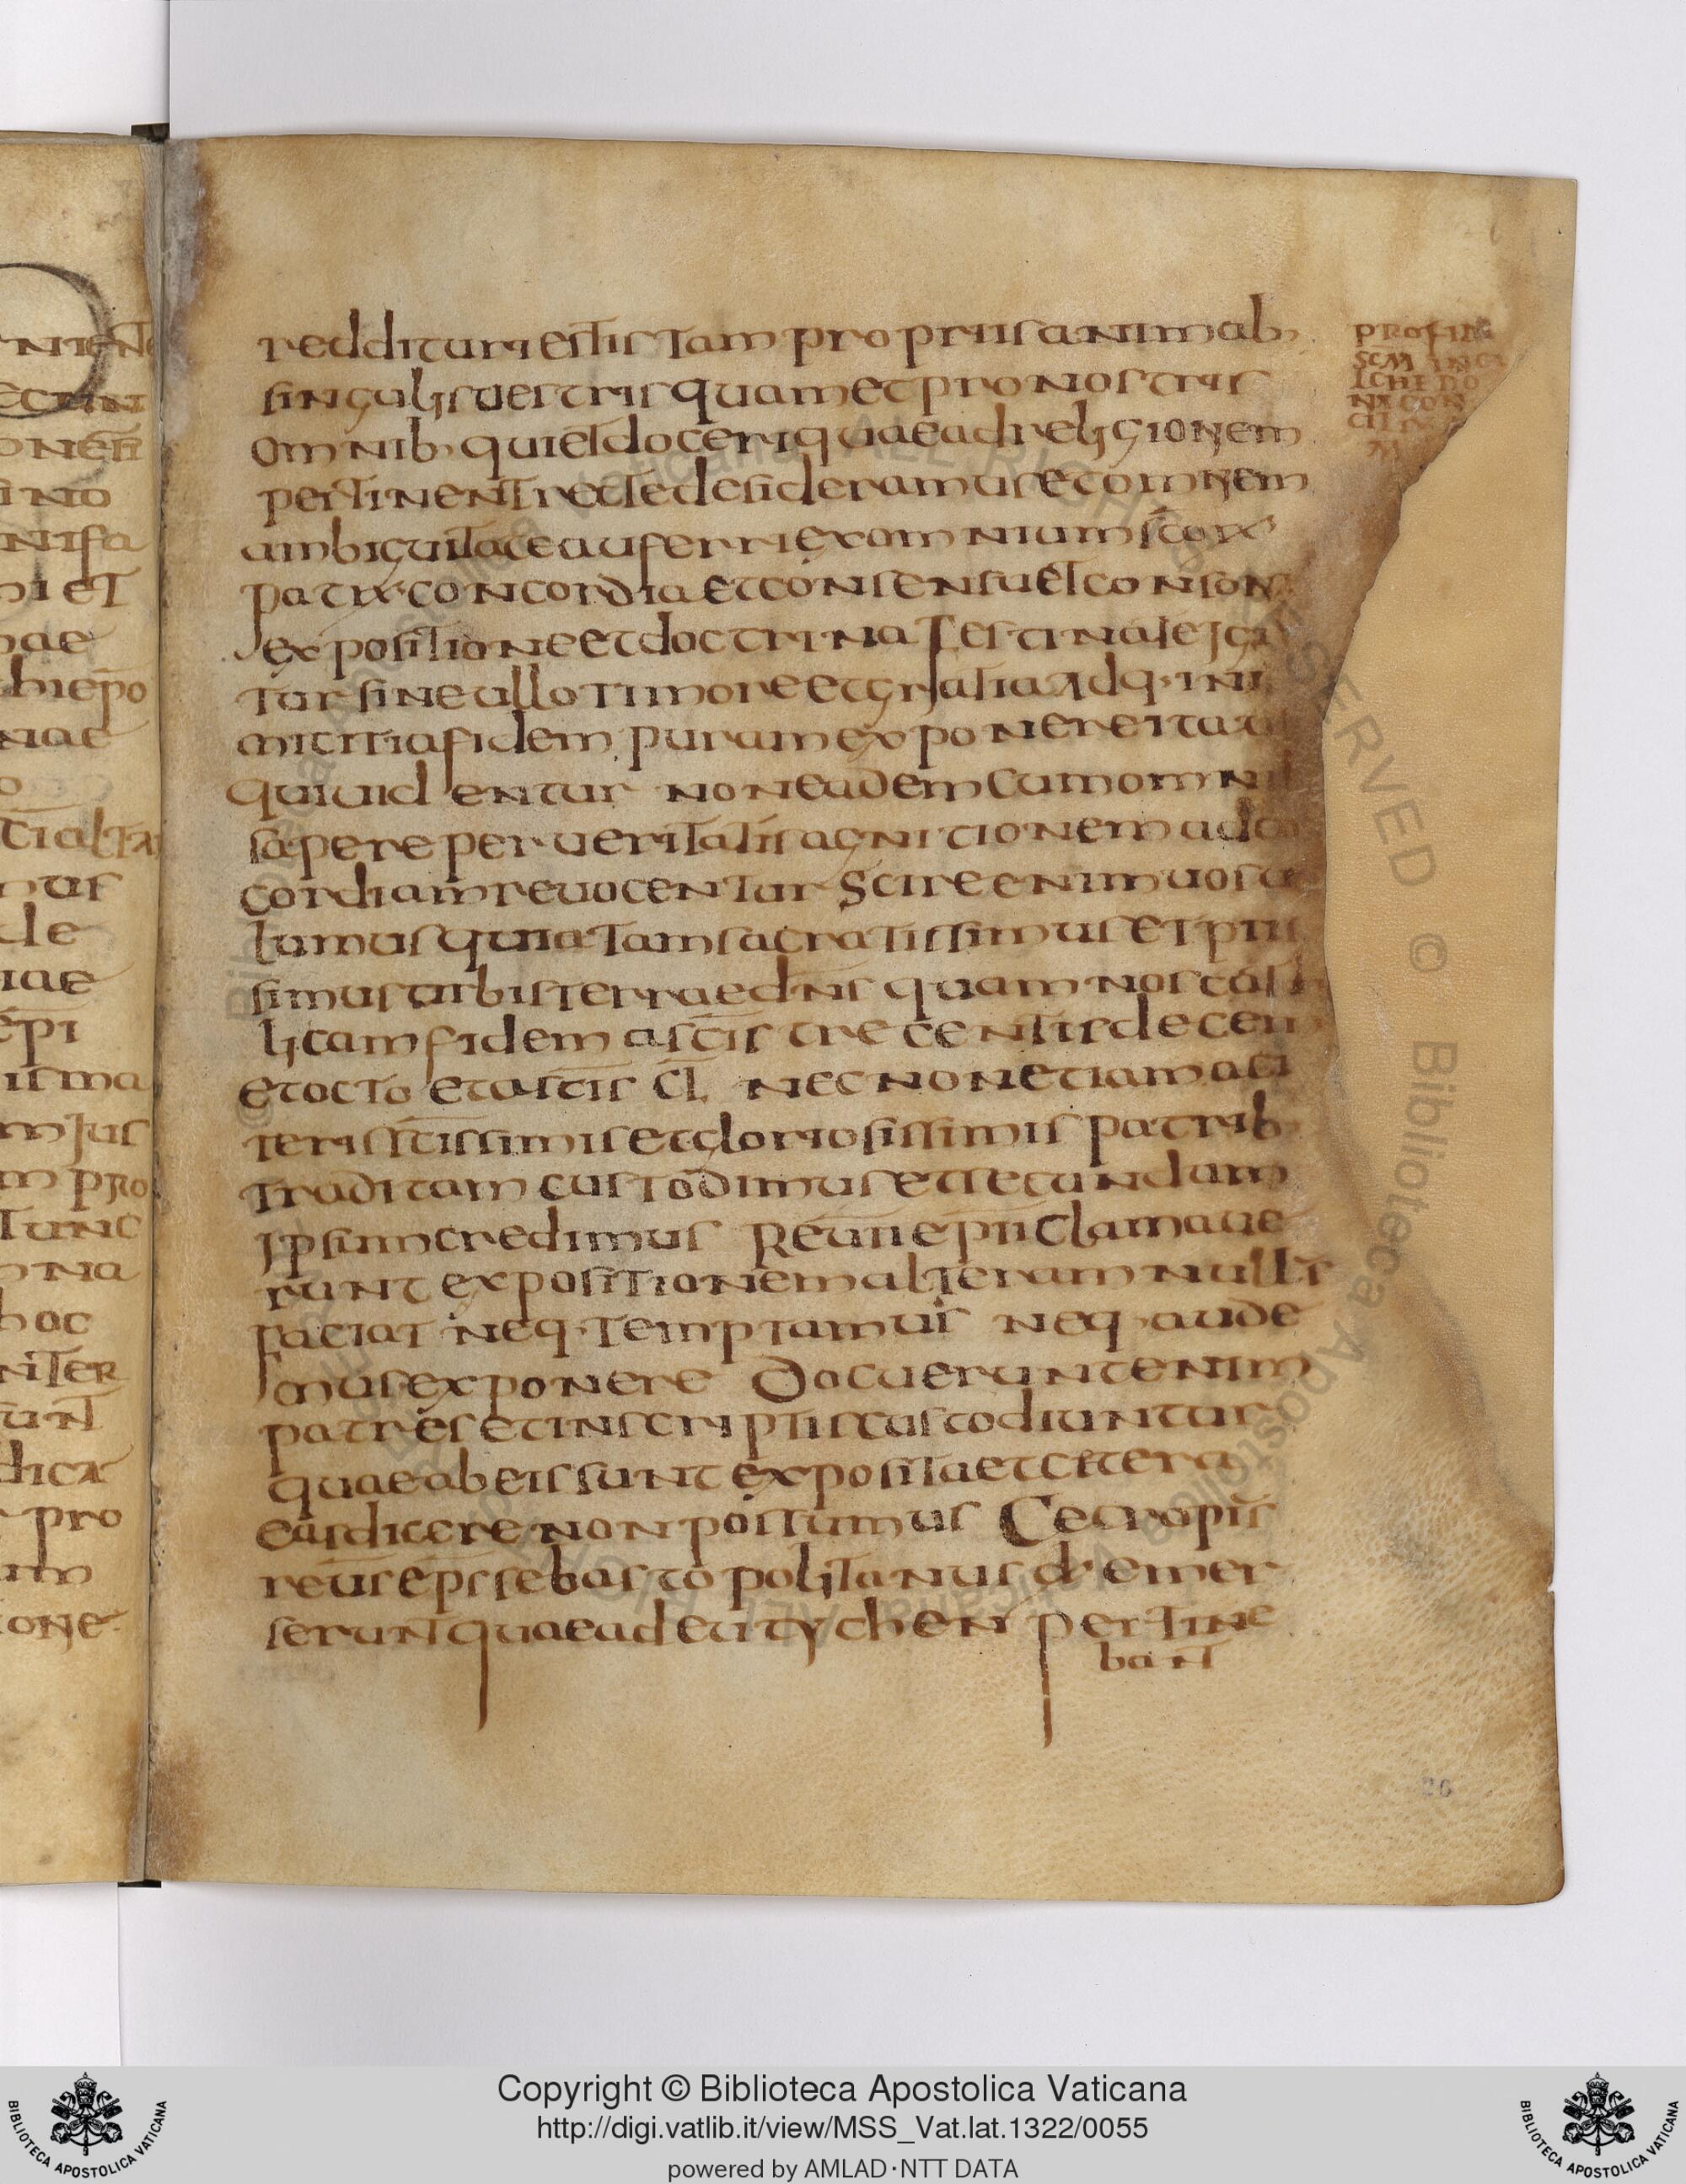 reddituri estis tam pro propriis animab·
singulis uestris quam et pro nostris
omnib· qui et doceri quae ad religionem
pertinent recte desideramus et omnem
ambiguitate auferri ex omnium scorum
patrum concordia et consensu et conson
expositione et doctrina festinate igi
tur sine ullo timore et gratia adq· ini
micitia fidem puram exponere ita ut
qui uidentur non eadem cum omnib
sapere per ueritatis agnitionem ad con
cordiam reuocentur Scire enim uos uo
lumus quia tam sacratissimus et piis
simus orbis terrae dns quam nos catho
licam fidem a scis trecentis decem
et octo et a scis cl nec non etiam a ce
teris scissimis et gloriosissimis patrib·
traditam custodimus et secundum
ipsum credimus Reuni epii clamaue
runt expositionem alteram nullus
faciat neq· temptamus neq· aude
mus exponere Docuerunt enim
patres et in scriptis custodiuntur
quae ab eis sunt exposita et citera
eas dicere non possumus Cecropius
reus eps sebastopolitanus d· emer
serunt quae ad eutychen pertine
bant
scm
26
Copyright © Biblioteca Apostolica Vaticana
http://digi.vatlib.it/view/MSS_Vat.lat.1322/0055
powered by AMLAD·NTT DATA